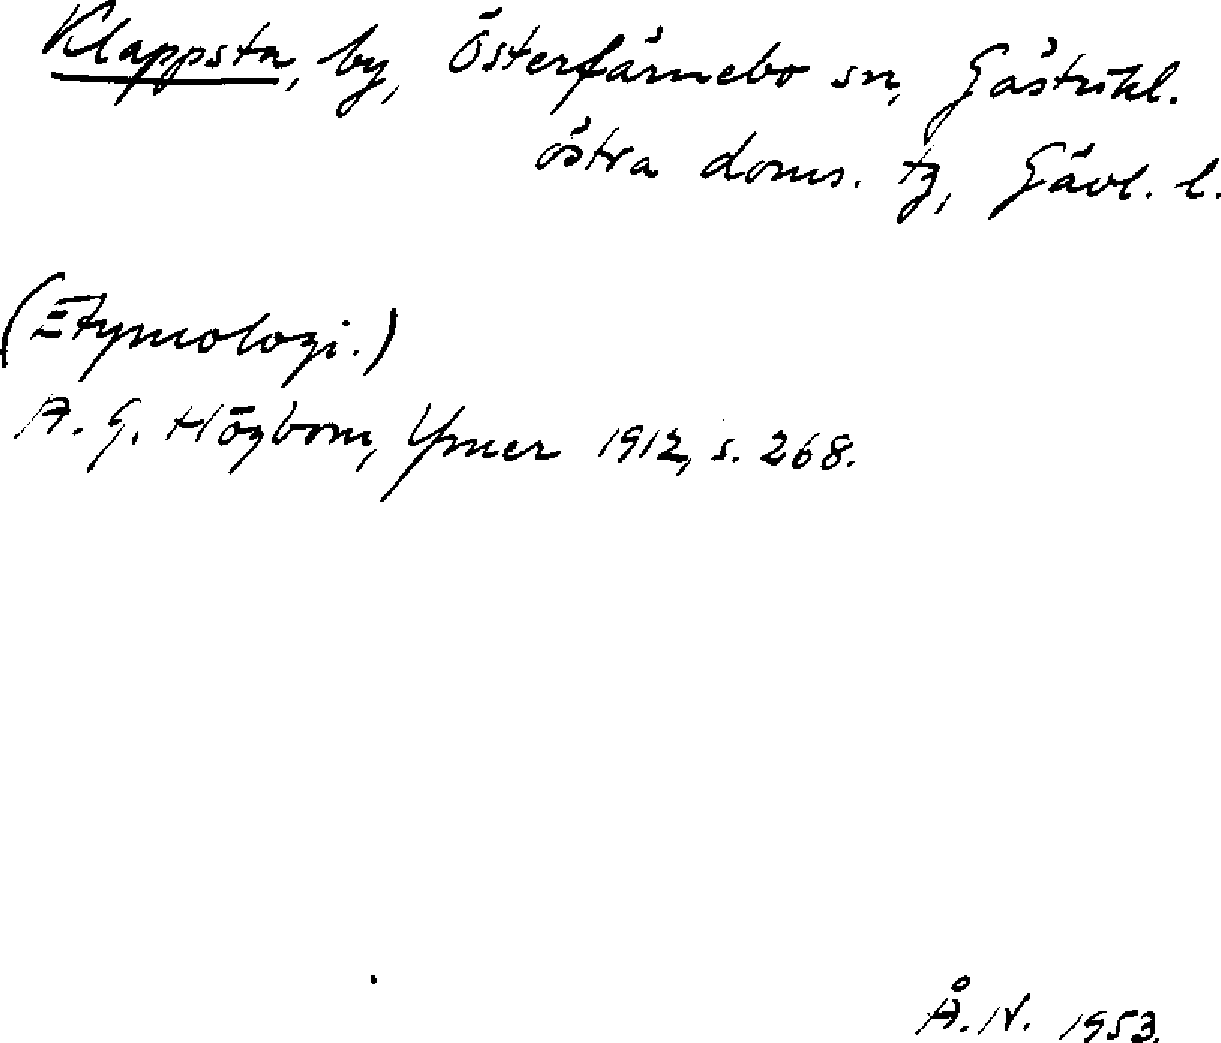 Klappsta, by, Österfärnebo sn, Gästrikl.
östra doms. tg, Gävl. l.
(Etymologi.)
A. G. Högbom, Ymer 1912, s. 268.
Å. N. 1953.